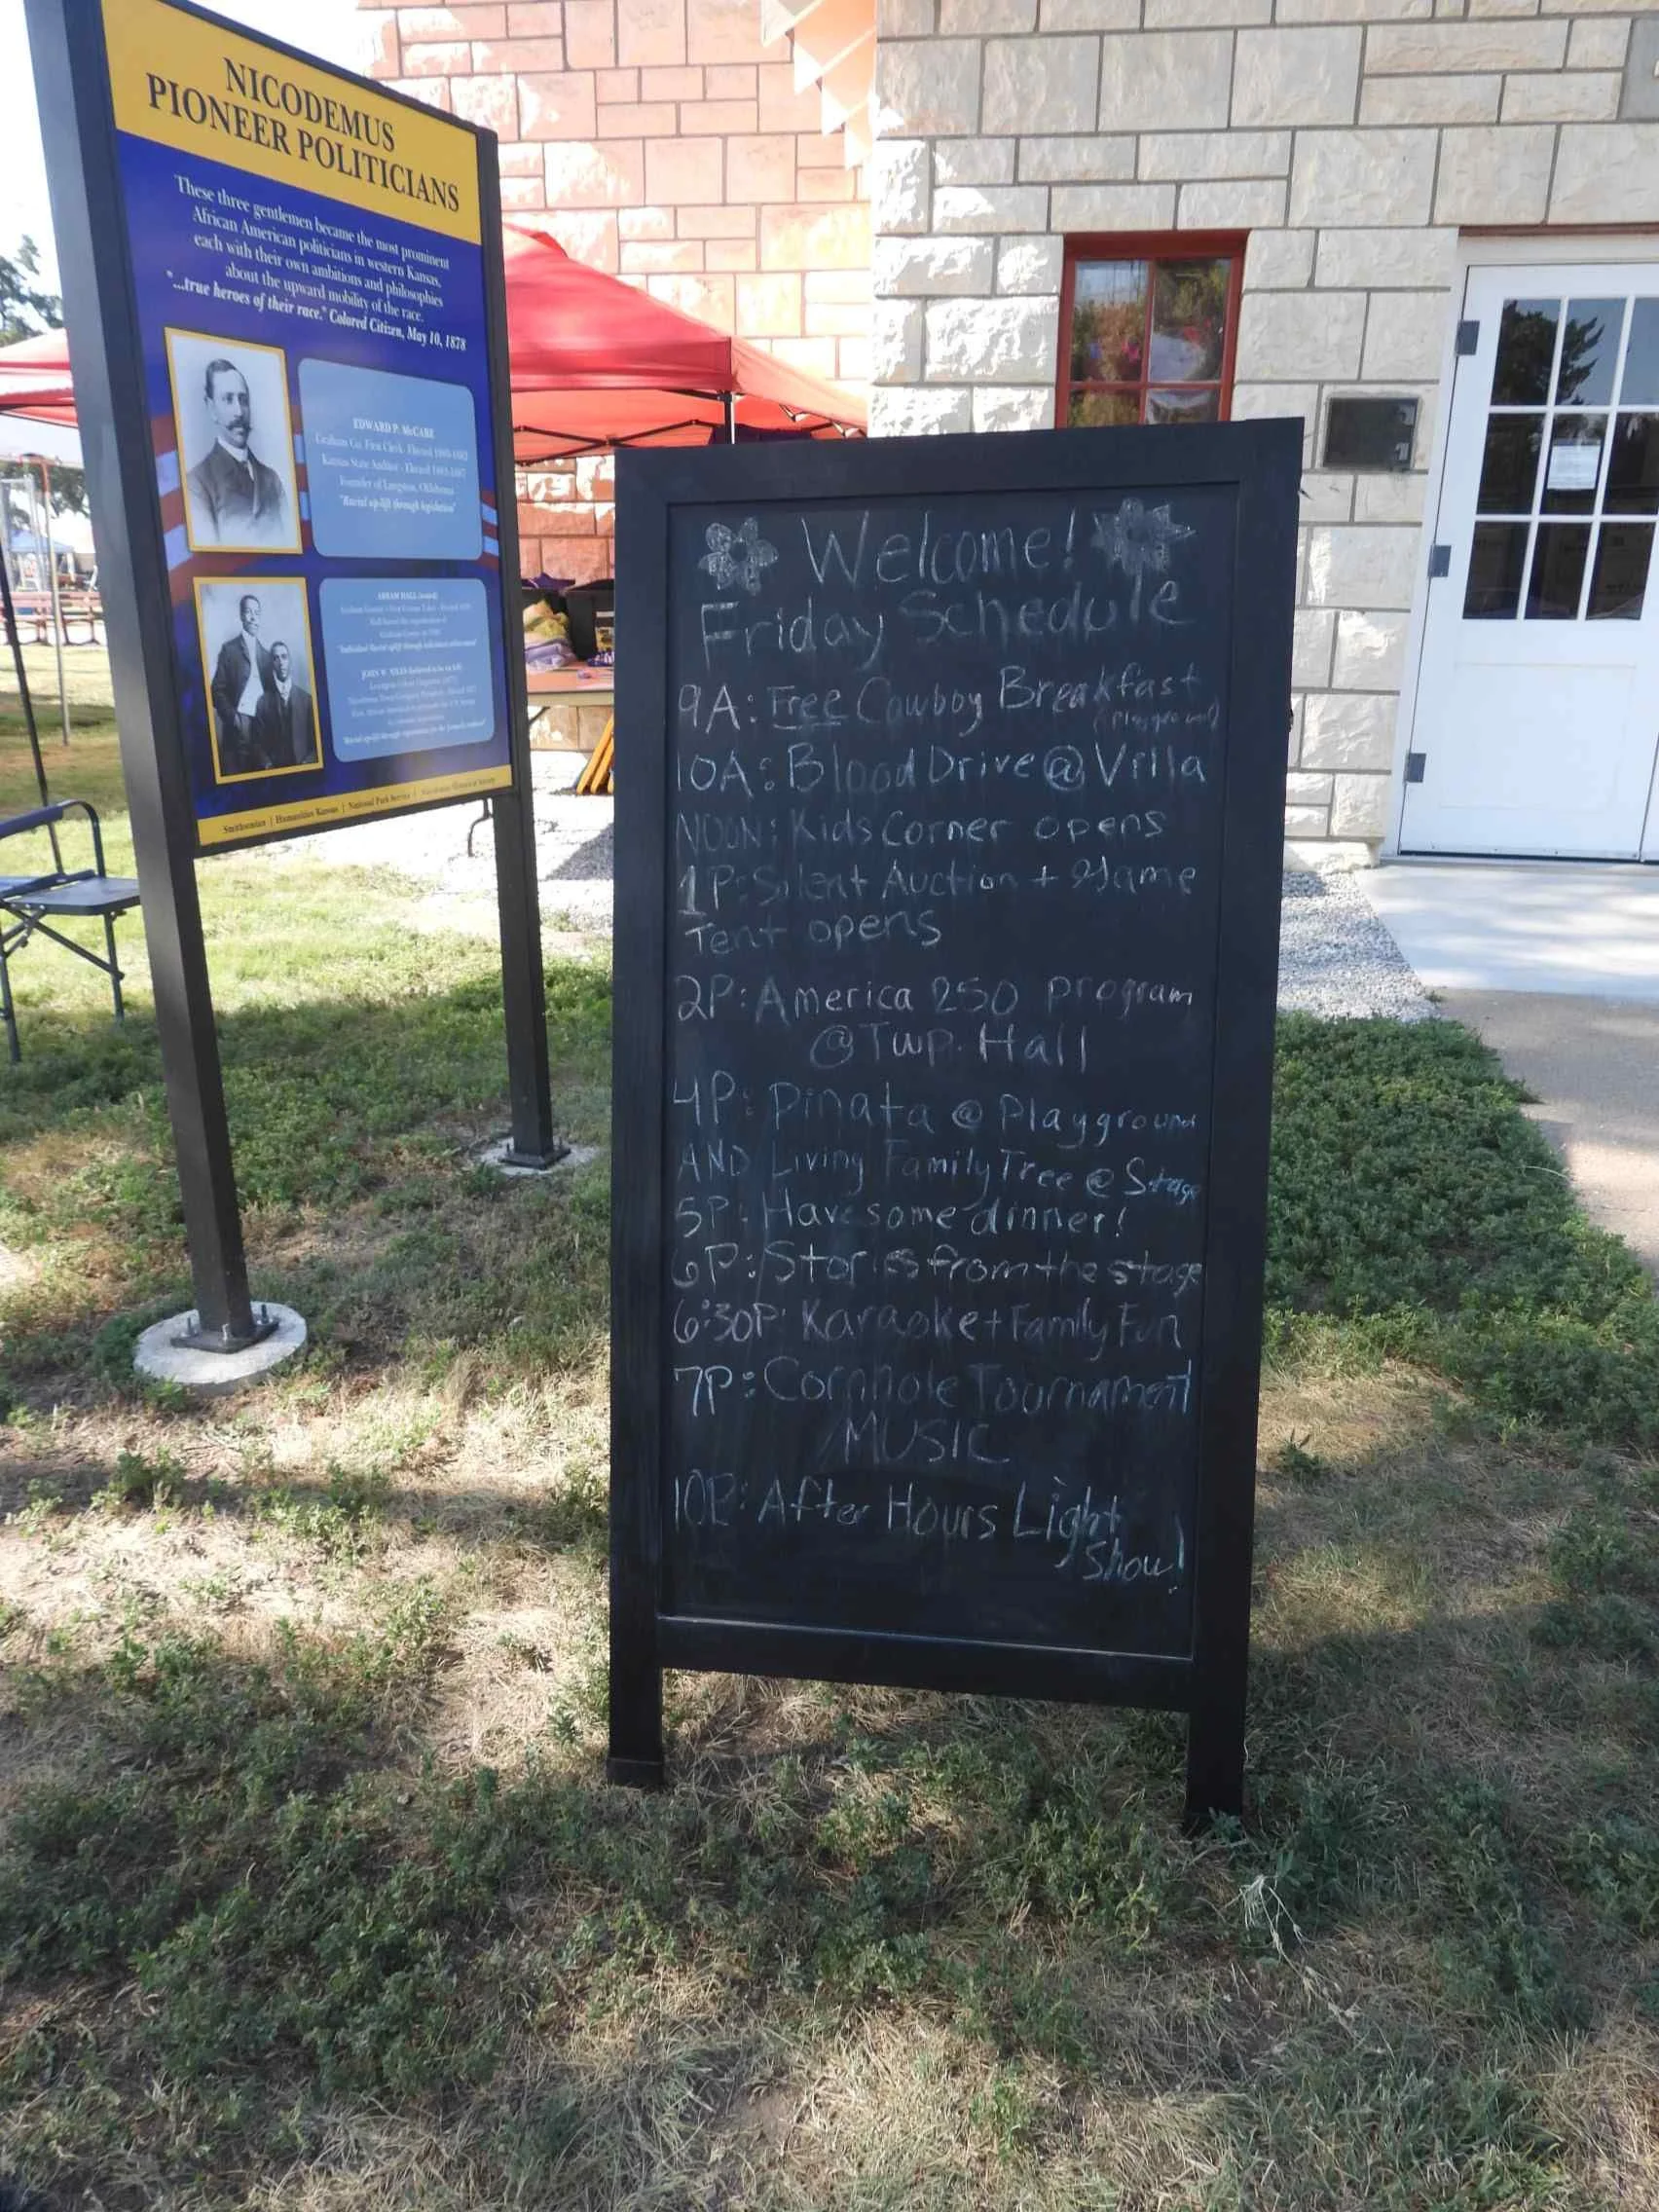 NICODEMUS
PIONEER POLITICIANS
These three gentlemen became the most prominent
African American politicians in western Kansas,
each with their own ambitions and philosophies
about the upward mobility of the race.
"...true heroes of their race." Colored Citizen, May 10, 1878
EDWARD P. McCABE
Graham Co. First Clerk - Elected
Kansas State Auditor - Elected
Founder of Langston, Oklahoma
"Racial up-lift through legislation"
ABRAM HALL
JOHN W. NILES
Smithsonian | Humanities Kansas | National Park Service |
Welcome!
Friday Schedule
9A: Free Cowboy Breakfast
(Playground)
10A: Blood Drive @ Villa
NOON: Kids Corner opens
1P: Silent Auction + Game
Tent opens
2P: America 250 program
@ Twp. Hall
4P: Pinata @ Playground
AND Living Family Tree @ Stage
5P: Have some dinner!
6P: Stories from the stage
6:30P: Karaoke + Family Fun
7P: Cornhole Tournament
MUSIC
10P: After Hours Light
Show!